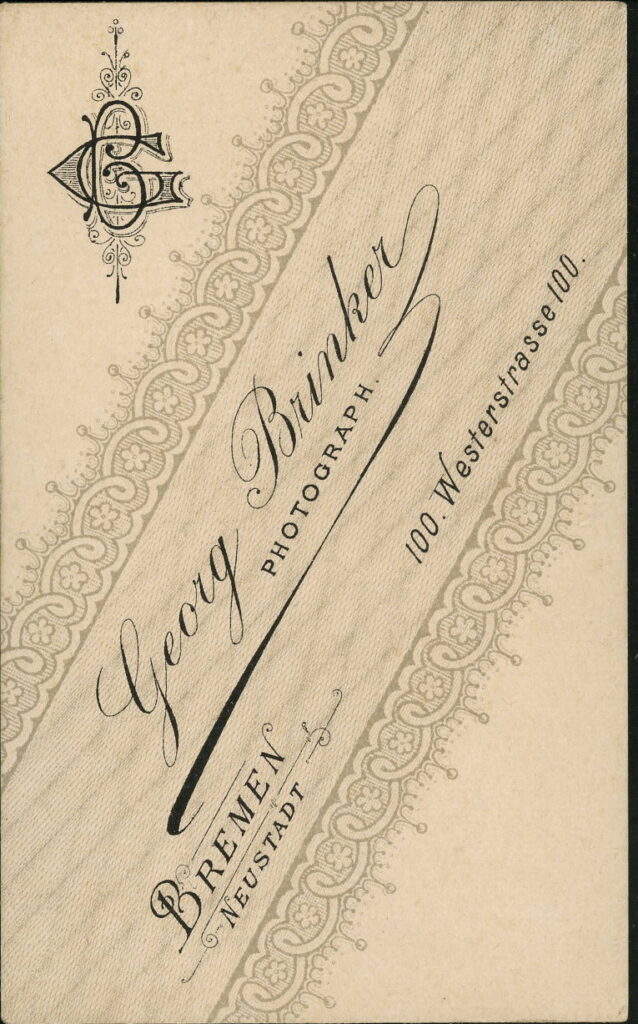 GB
Georg Brinker
PHOTOGRAPH.
100. Westerstrasse 100.
BREMEN
NEUSTADT